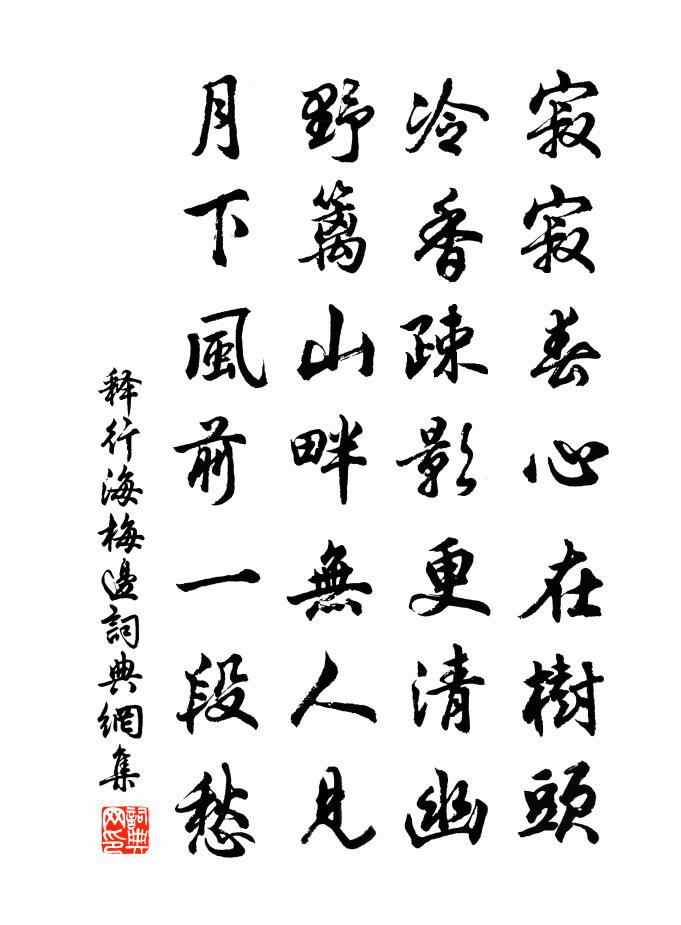 寂寂春心在樹頭
冷香疎影更清幽
野籬山畔無人見
月下風前一段愁
释行海梅邊詞典網集
詞典網印